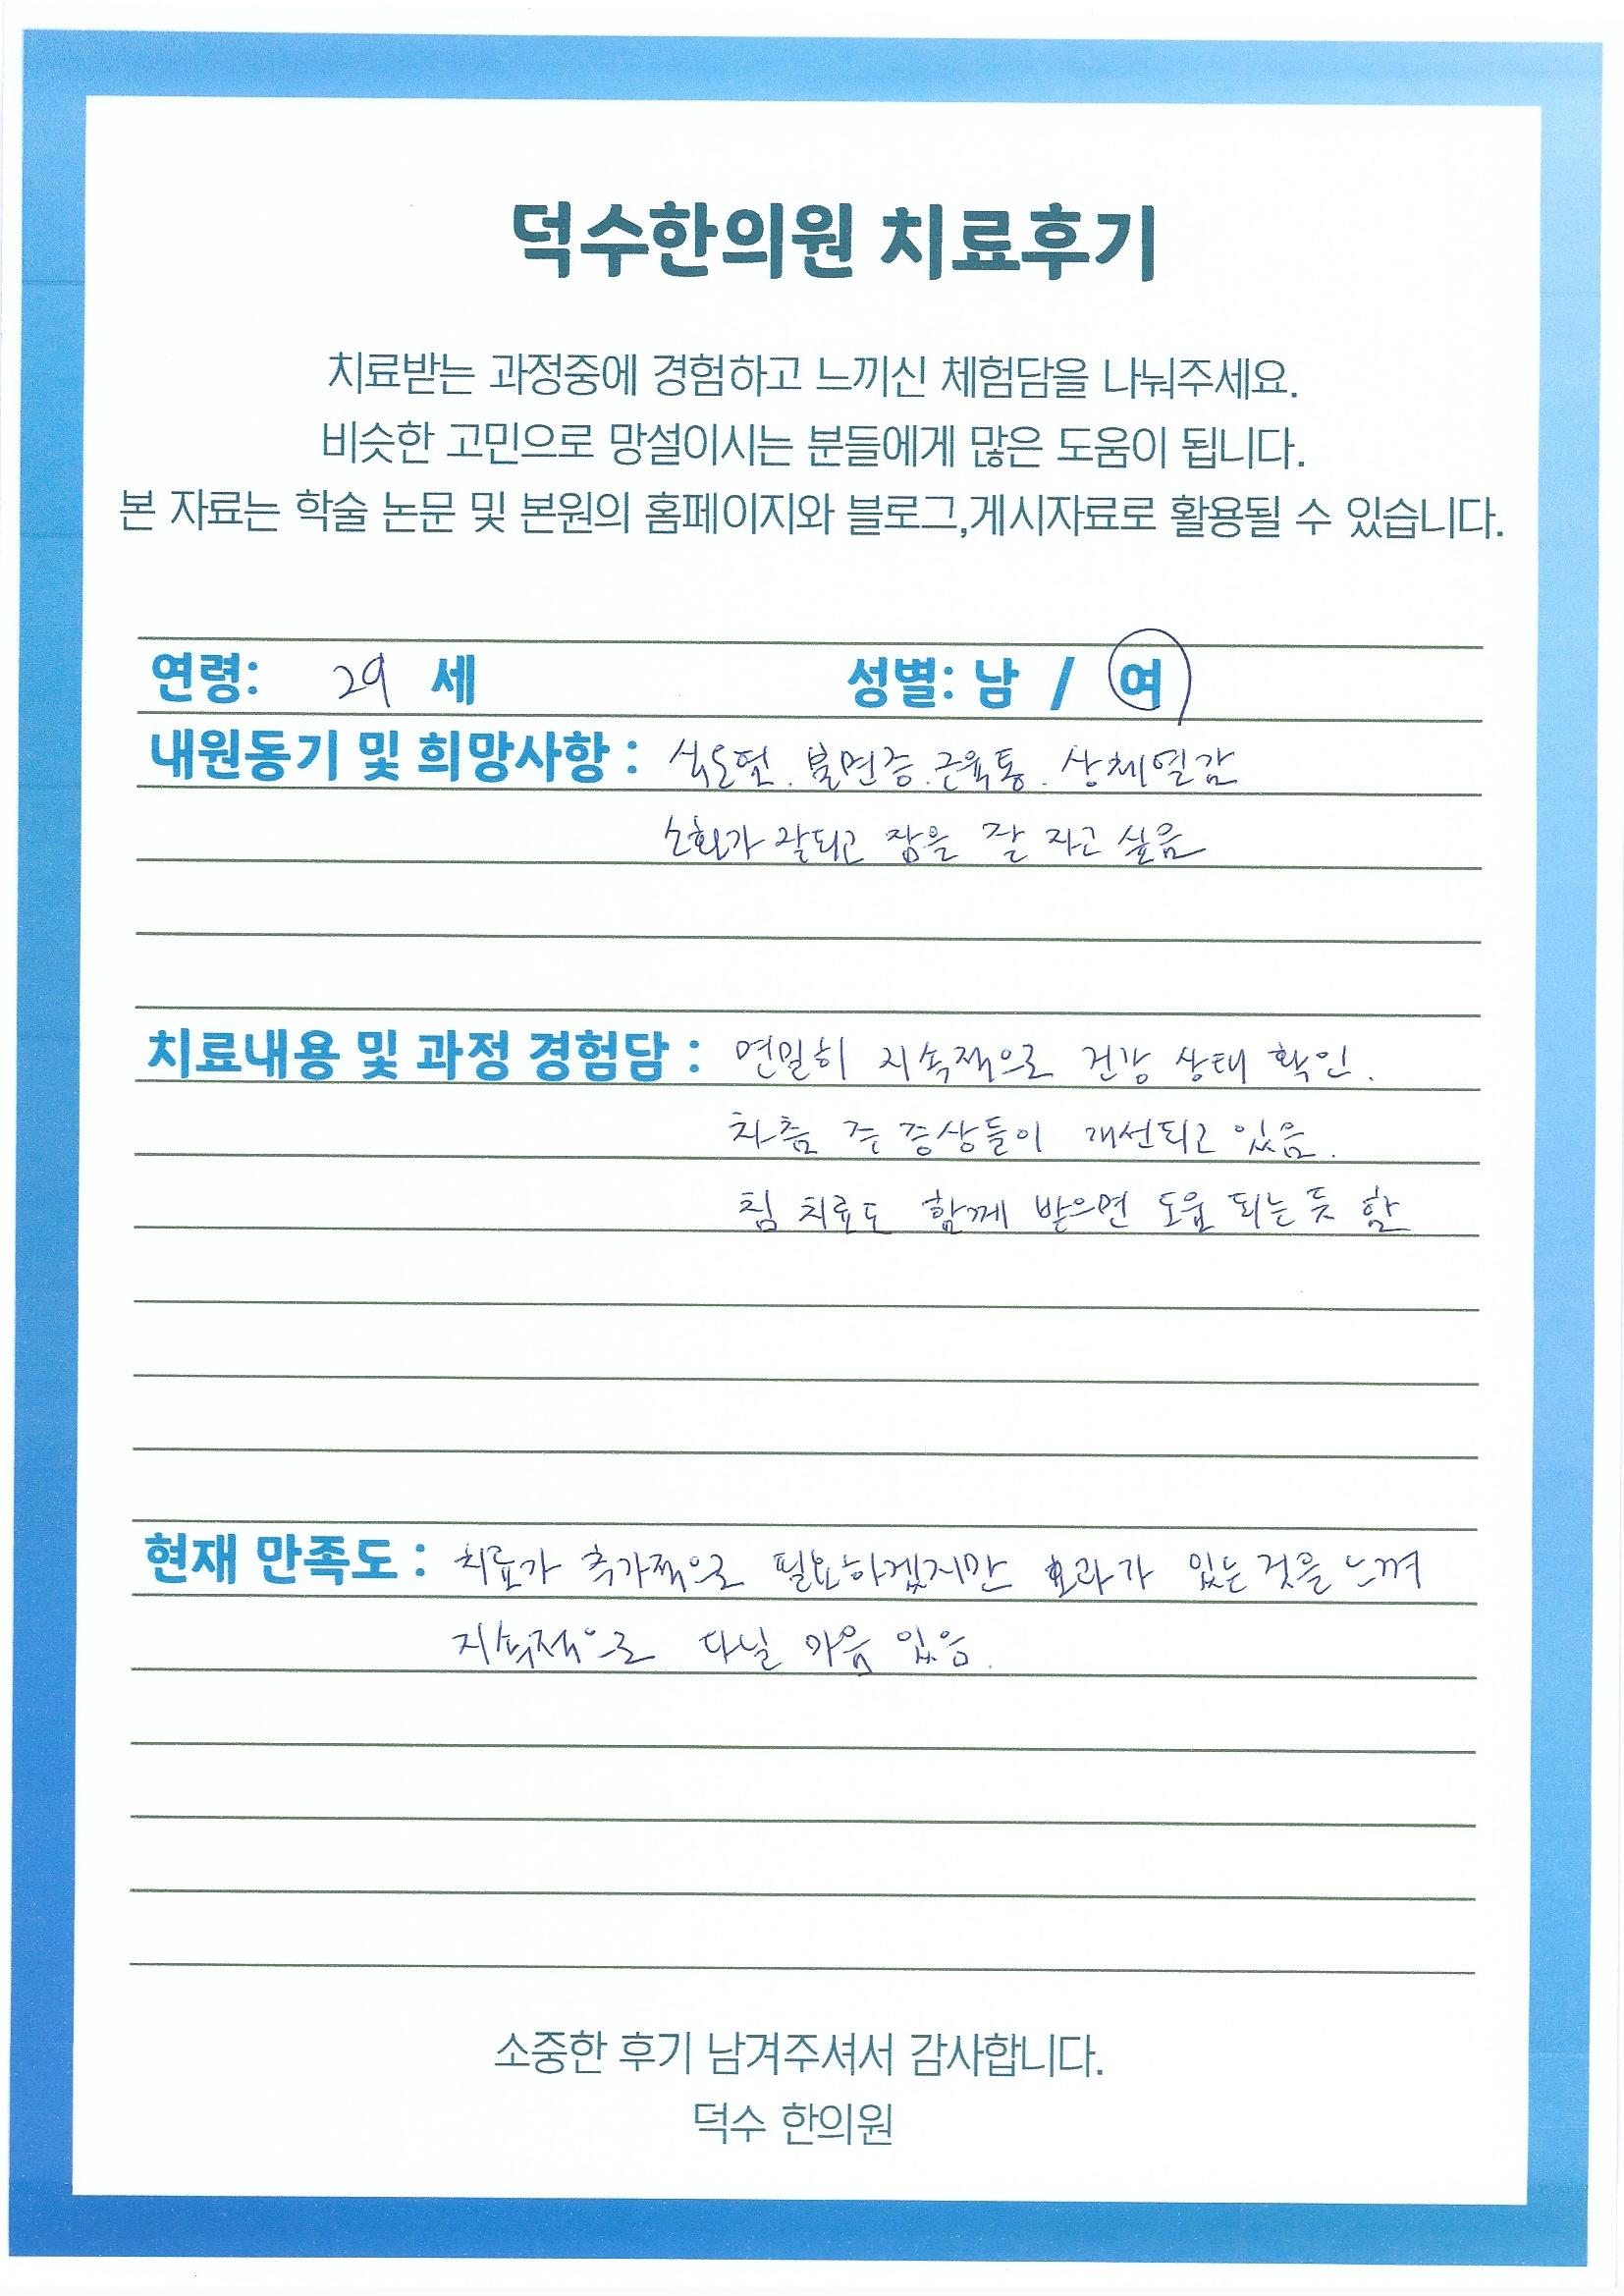 덕수한의원 치료후기
치료받는 과정중에 경험하고 느끼신 체험담을 나눠주세요.
비슷한 고민으로 망설이시는 분들에게 많은 도움이 됩니다.
본 자료는 학술 논문 및 본원의 홈페이지와 블로그,게시자료로 활용될 수 있습니다.
연령: 29 세 성별: 남 / 여
내원동기 및 희망사항 : 식도염. 불면증. 근육통. 상체열감
소화가 잘되고 잠을 잘 자고 싶음
치료내용 및 과정 경험담 : 면밀히 지속적으로 건강 상태 확인.
차츰 주 증상들이 개선되고 있음.
침 치료도 함께 받으면 도움 되는 듯 함
현재 만족도 : 치료가 추가적으로 필요하겠지만 효과가 있는 것을 느껴
지속적으로 다닐 마음 있음.
소중한 후기 남겨주셔서 감사합니다.
덕수 한의원